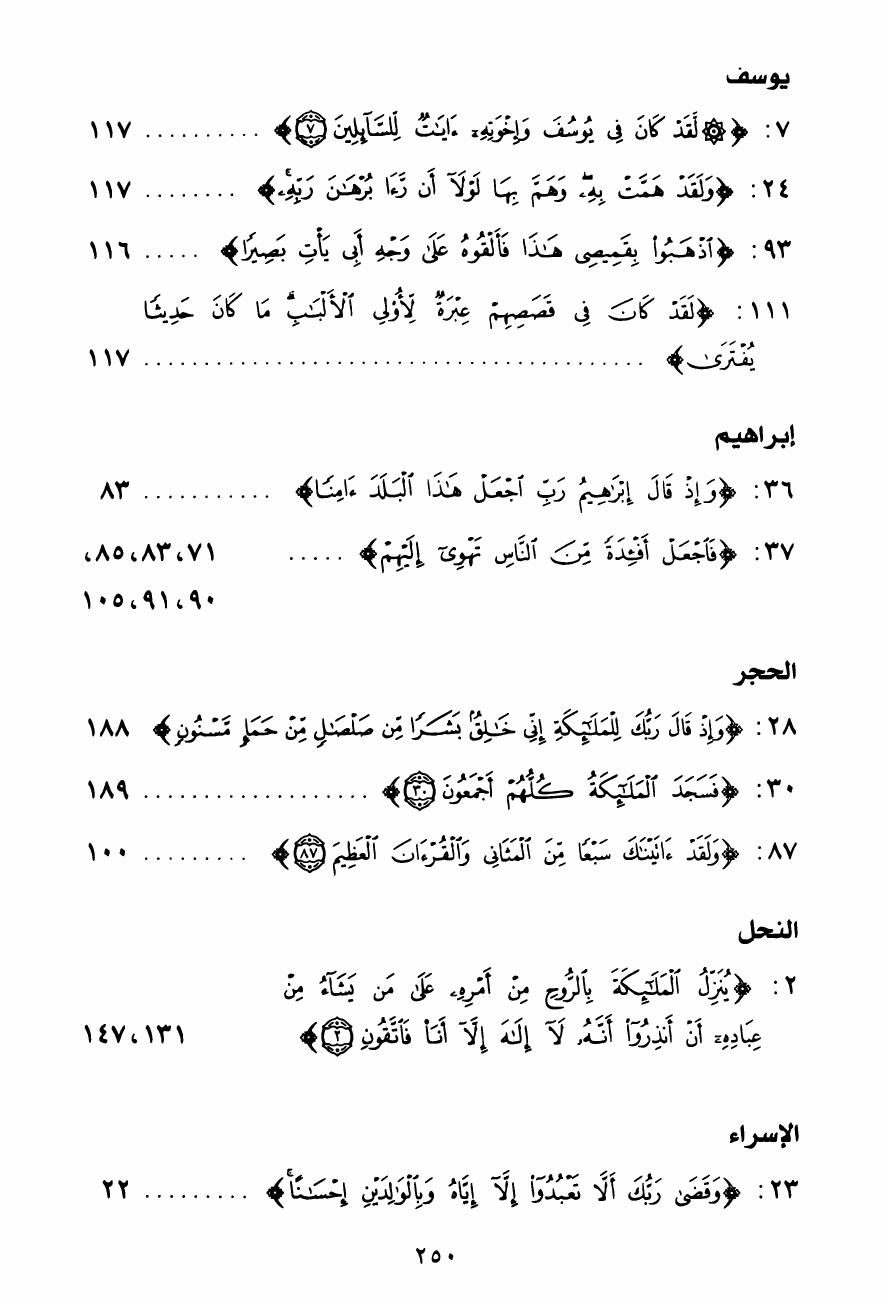 يوسف
٧: ﴿۞ لَّقَدْ كَانَ فِى يُوسُفَ وَإِخْوَتِهِۦٓ ءَايَـٰتٌ لِّلسَّآئِلِينَ ٧﴾ .......... ١١٧
٢٤: ﴿وَلَقَدْ هَمَّتْ بِهِۦ ۖ وَهَمَّ بِهَا لَوْلَآ أَن رَّءَا بُرْهَـٰنَ رَبِّهِۦ ۚ﴾ ........ ١١٧
٩٣: ﴿ٱذْهَبُوا۟ بِقَمِيصِى هَـٰذَا فَأَلْقُوهُ عَلَىٰ وَجْهِ أَبِى يَأْتِ بَصِيرًا﴾ ..... ١١٦
١١١: ﴿لَقَدْ كَانَ فِى قَصَصِهِمْ عِبْرَةٌ لِّأُو۟لِى ٱلْأَلْبَـٰبِ ۗ مَا كَانَ حَدِيثًا
يُفْتَرَىٰ﴾ .......................................... ١١٧
إبراهيم
٣٦: ﴿وَإِذْ قَالَ إِبْرَٰهِيمُ رَبِّ ٱجْعَلْ هَـٰذَا ٱلْبَلَدَ ءَامِنًا﴾ ........... ٨٣
٣٧: ﴿فَٱجْعَلْ أَفْـِٔدَةً مِّنَ ٱلنَّاسِ تَهْوِىٓ إِلَيْهِمْ﴾ ..... ٧١، ٨٣، ٨٥،
٩٠، ٩١، ١٠٥
الحجر
٢٨: ﴿وَإِذْ قَالَ رَبُّكَ لِلْمَلَـٰٓئِكَةِ إِنِّى خَـٰلِقٌۢ بَشَرًا مِّن صَلْصَـٰلٍ مِّنْ حَمَإٍ مَّسْنُونٍ﴾ ١٨٨
٣٠: ﴿فَسَجَدَ ٱلْمَلَـٰٓئِكَةُ كُلُّهُمْ أَجْمَعُونَ ٣٠﴾ ................... ١٨٩
٨٧: ﴿وَلَقَدْ ءَاتَيْنَـٰكَ سَبْعًا مِّنَ ٱلْمَثَانِى وَٱلْقُرْءَانَ ٱلْعَظِيمَ ٨٧﴾ ......... ١٠٠
النحل
٢: ﴿يُنَزِّلُ ٱلْمَلَـٰٓئِكَةَ بِٱلرُّوحِ مِنْ أَمْرِهِۦ عَلَىٰ مَن يَشَآءُ مِنْ
عِبَادِهِۦٓ أَنْ أَنذِرُوٓا۟ أَنَّهُۥ لَآ إِلَـٰهَ إِلَّآ أَنَا۠ فَٱتَّقُونِ ٢﴾ ١٣١، ١٤٧
الإسراء
٢٣: ﴿وَقَضَىٰ رَبُّكَ أَلَّا تَعْبُدُوٓا۟ إِلَّآ إِيَّاهُ وَبِٱلْوَٰلِدَيْنِ إِحْسَـٰنًا ۚ﴾ ......... ٢٢
٢٥٠